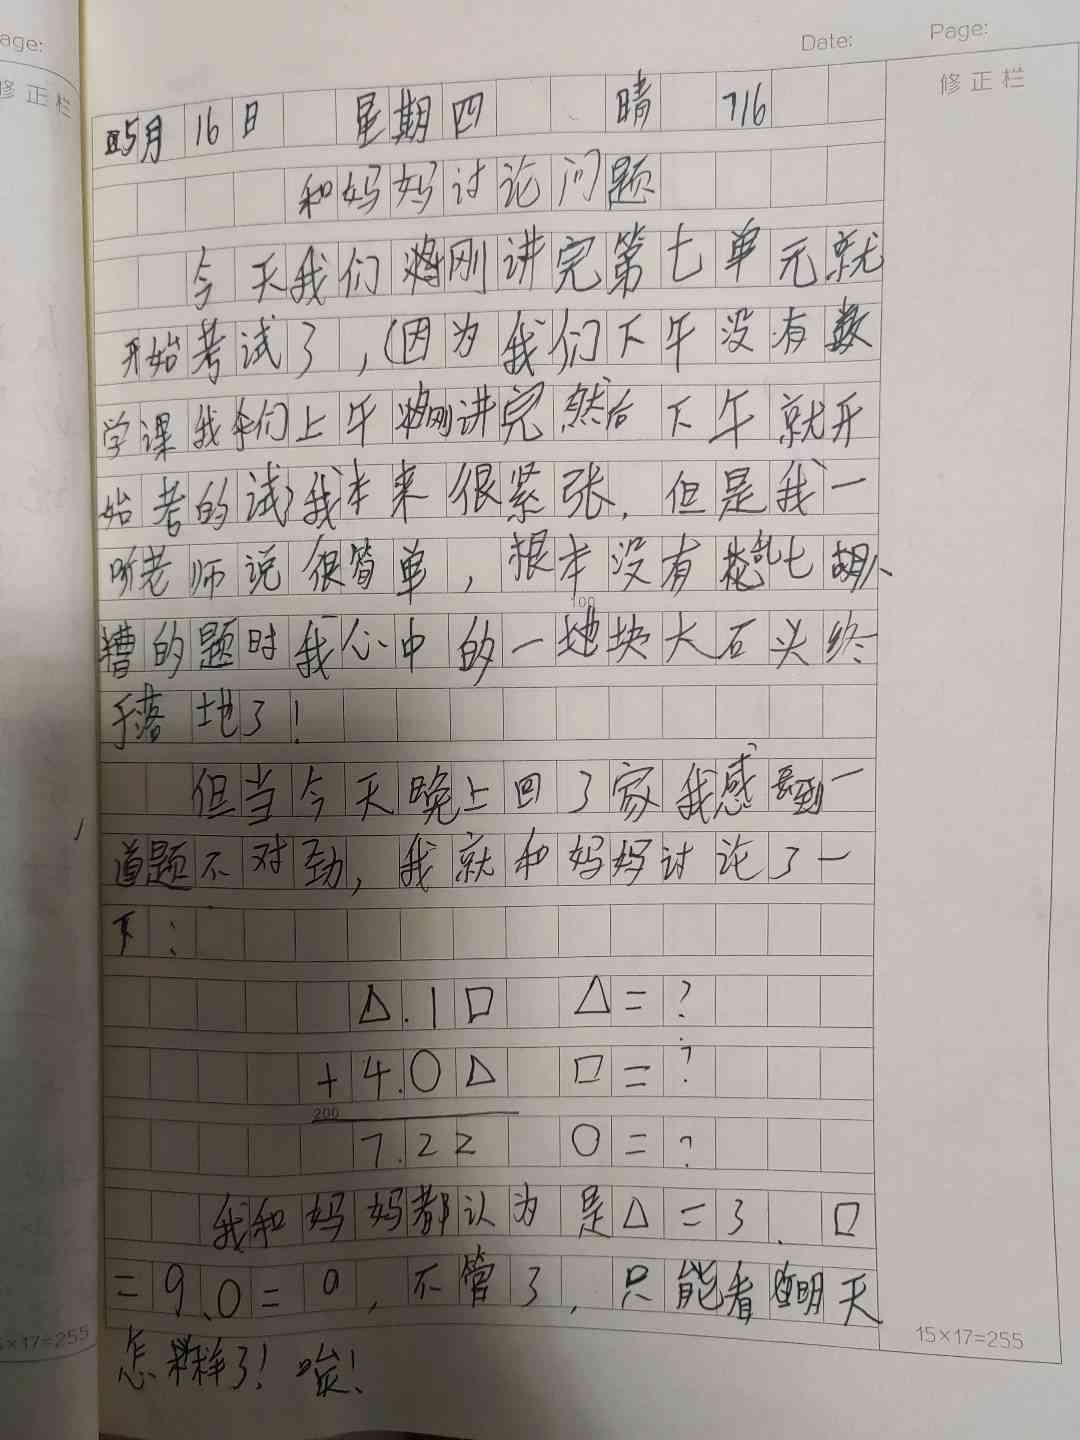 age:
Date:
Page:
修正栏
修正栏
5月16日 星期四 晴 716
和妈妈讨论问题
今天我们刚讲完第七单元就
开始考试了,(因为我们下午没有数
学课我们上午刚讲完然后下午就开
始考的试)我本来很紧张,但是我一
听老师说很简单,根本没有乱七八
糟的题时我心中的一块大石头终
于落地了!
100
但当今天晚上回了家我感到一
道题不对劲,我就和妈妈讨论了一
下:
△.1□ △=?
+4.○△ □=?
200
7.22 ○=?
我和妈妈都认为是△=3、□
=9、○=0,不管了,只能看明天
怎样了!唉!
15×17=255
5×17=255